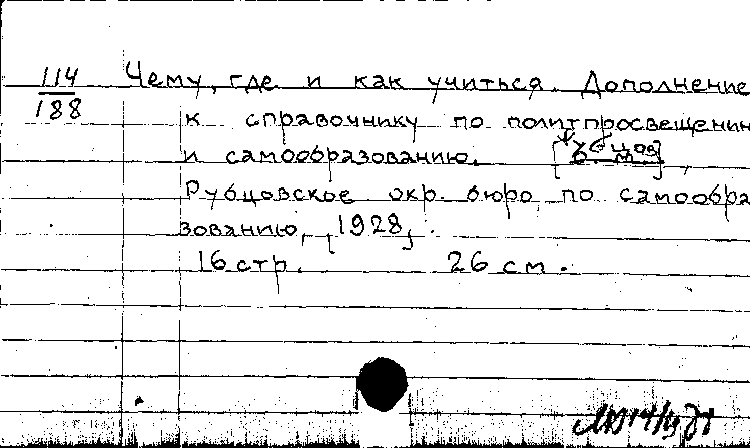 114
188
Чему, где и как учиться. Дополнение
к справочнику по политпросвещению
и самообразованию.
Рубцовское окр. бюро по самообра
зованию, [1928].
16 стр. 26 см.